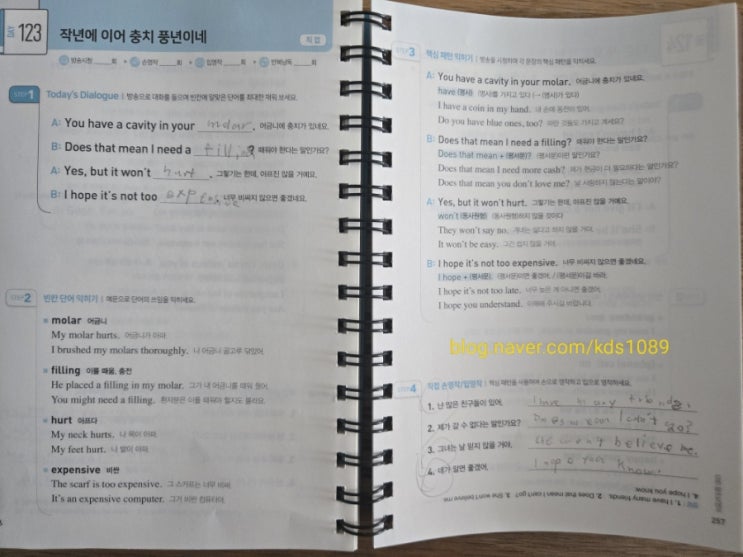 DAY 123
작년에 이어 충치 풍년이네
직접
방송시청 ____회 손영작 ____회 입영작 ____회 반복낭독 ____회
STEP 1 Today's Dialogue | 방송으로 대화를 들으며 빈칸에 알맞은 단어를 최대한 채워 보세요.
A: You have a cavity in your molar. 어금니에 충치가 있네요.
B: Does that mean I need a filling? 때워야 한다는 말인가요?
A: Yes, but it won't hurt. 그렇기는 한데, 아프진 않을 거예요.
B: I hope it's not too 너무 비싸지 않으면 좋겠네요.
STEP 2 빈칸 단어 익히기 | 예문으로 단어의 쓰임을 익히세요.
molar 어금니
My molar hurts. 어금니가 아파.
I brushed my molars thoroughly. 나 어금니 골고루 닦았어.
filling 이를 때움, 충전
He placed a filling in my molar. 그가 내 어금니를 때워 줬어.
You might need a filling. 환자분은 이를 때워야 할지도 몰라요.
hurt 아프다
My neck hurts. 나 목이 아파.
My feet hurt. 나 발이 아파.
expensive 비싼
The scarf is too expensive. 그 스카프는 너무 비싸.
It's an expensive computer. 그거 비싼 컴퓨터야.
STEP 3 핵심 패턴 익히기 | 방송을 시청하며 각 문장의 핵심 패턴을 익히세요.
A: You have a cavity in your molar. 어금니에 충치가 있네요.
have (명사) (명사)를 가지고 있다 / → (명사)가 있다
I have a coin in my hand. 내 손에 동전이 있어.
Do you have blue ones, too? 파란 것들도 가지고 계세요?
B: Does that mean I need a filling? 때워야 한다는 말인가요?
Does that mean + (평서문)? (평서문)이란 말인가요?
Does that mean I need more cash? 제가 현금이 더 필요하다는 말인가요?
Does that mean you don't love me? 날 사랑하지 않는다는 말이야?
A: Yes, but it won't hurt. 그렇기는 한데, 아프진 않을 거예요.
won't (동사원형) (동사원형)하지 않을 것이다
They won't say no. 걔네는 싫다고 하지 않을 거야.
It won't be easy. 그건 쉽지 않을 거야.
B: I hope it's not too expensive. 너무 비싸지 않으면 좋겠네요.
I hope + (평서문). (평서문)이면 좋겠어. / (평서문)이길 바라.
I hope it's not too late. 너무 늦은 게 아니면 좋겠어.
I hope you understand. 이해해 주시길 바랍니다.
blog.naver.com/kds1089
STEP 4 직접 손영작/입영작 | 핵심 패턴을 사용하여 손으로 영작하고 입으로 영작하세요.
1. 난 많은 친구들이 있어. I have many friends.
2. 제가 갈 수 없다는 말인가요? Does mean I can't go?
3. 그녀는 날 믿지 않을 거야. believe me.
4. 네가 알면 좋겠어. I hope you know.
1. I have many friends. 2. Does that mean I can't go? 3. She won't believe me.
4. I hope you know.
257